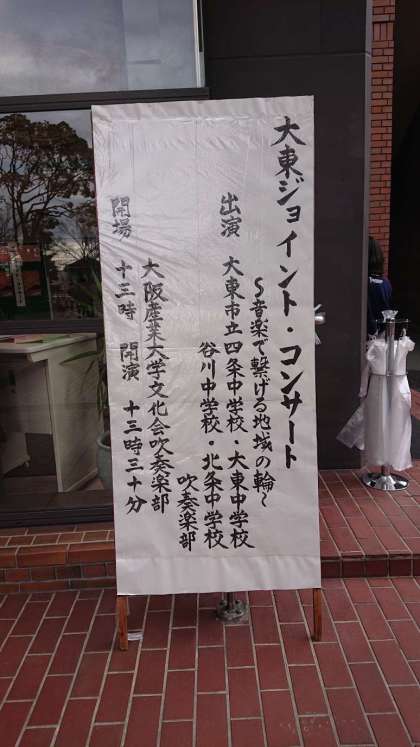 大東ジョイント・コンサート
～音楽で繋げる地域の輪～
出演 大東市立四条中学校・大東中学校
谷川中学校・北条中学校
吹奏楽部
大阪産業大学文化会吹奏楽部
開場 十三時 開演 十三時三十分